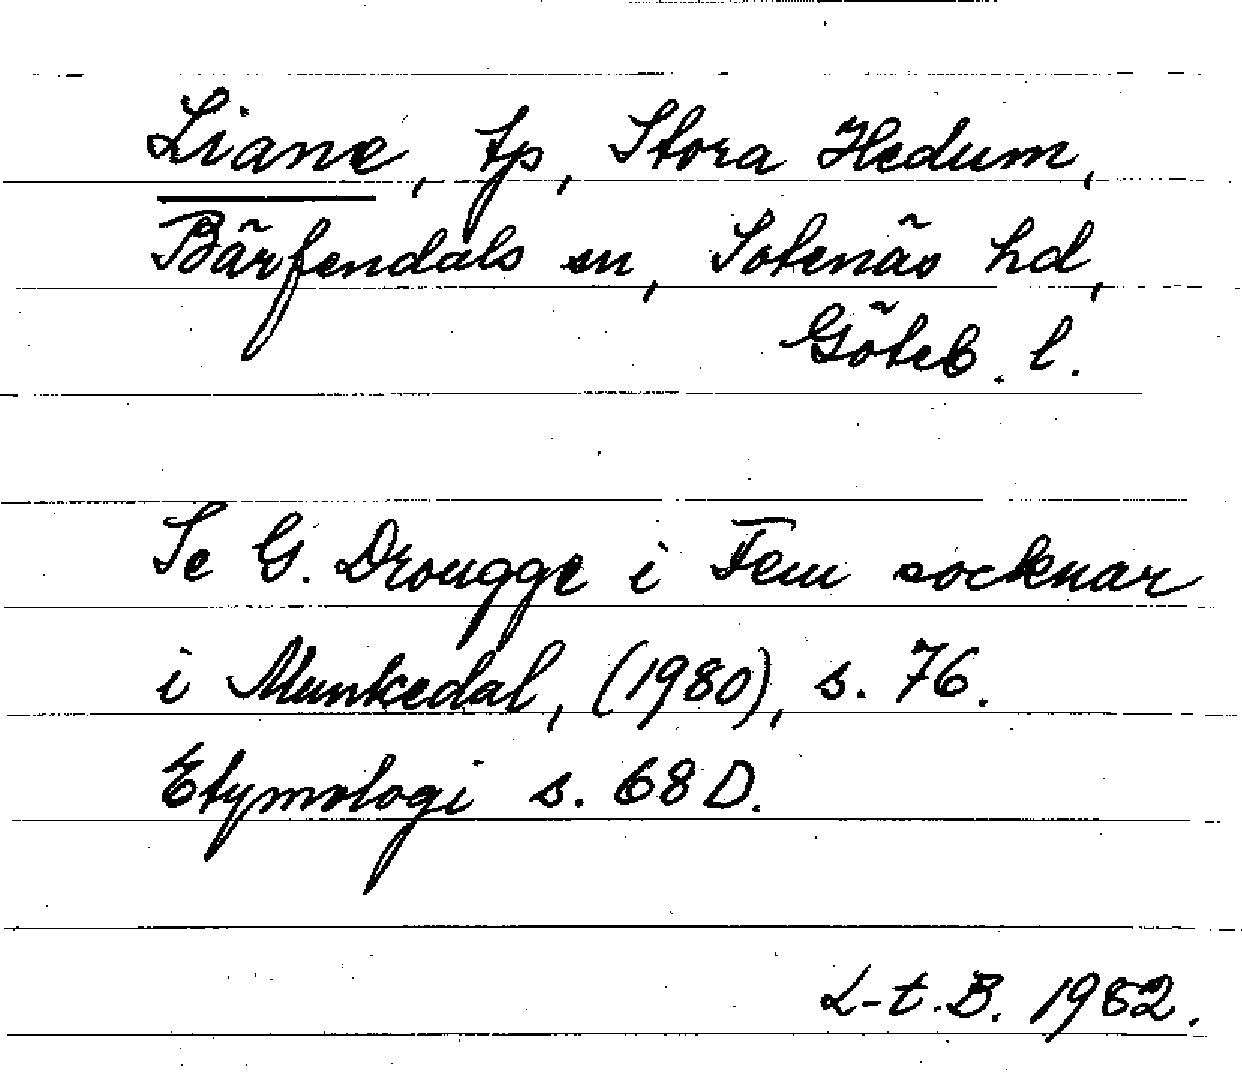 Liane, tp, Stora Hedum,
Bärfendals sn, Sotenäs hd,
Göteb. l.
Se G. Drougge i Fem socknar
i Munkedal, (1980), s. 76.
Etymologi s. 68 D.
L-t. B. 1982.